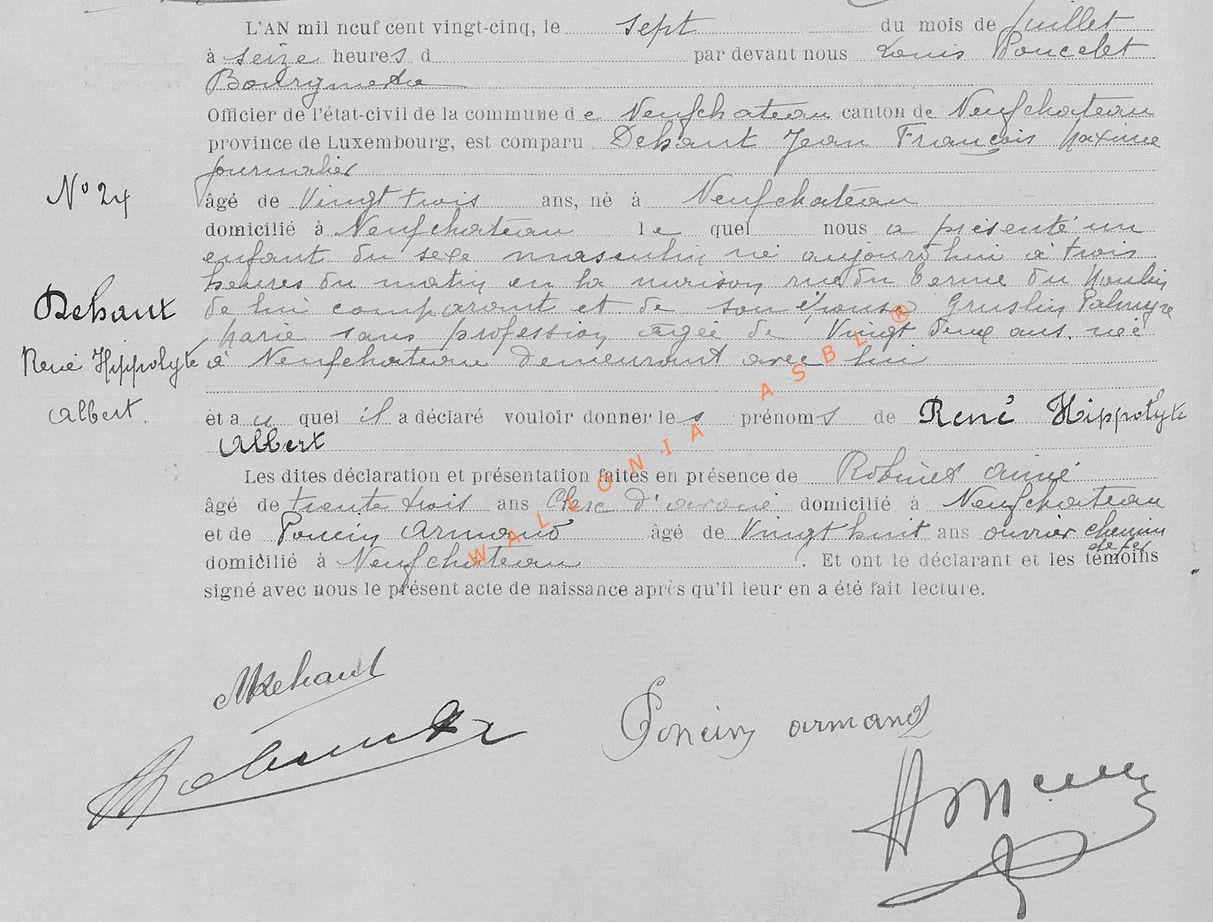 L'AN mil neuf cent vingt-cinq, le sept du mois de Juillet
à seize heures d par devant nous Louis Poncelet
Bourgmestre
Officier de l'état-civil de la commune de Neufchateau canton de Neufchateau
province de Luxembourg, est comparu Dehant Jean François Maxime
journalier
N° 24
âgé de Vingt trois ans, né à Neufchateau
domicilié à Neufchateau le quel nous a présenté un
enfant du sexe masculin né aujourd'hui à trois
heures du matin en sa maison rue du Terme du Moulin
Dehant
de lui comparant et de son épouse Palmyre
Marie sans profession agée de Vingt deux ans, née
René Hippolyte
à Neufchateau demeurant avec lui
Albert.
et au quel il a déclaré vouloir donner les prénoms de René Hippolyte
Albert
Les dites déclaration et présentation faites en présence de Robinet Aimé
âgé de trente trois ans Clerc d'avoué domicilié à Neufchateau
et de Poncin Armand âgé de Vingt huit ans ouvrier chemin
de fer
domicilié à Neufchateau. Et ont le déclarant et les témoins
signé avec nous le présent acte de naissance après qu'il leur en a été fait lecture.
WALLONIA ASBL ®
MDehant
Poncin armand